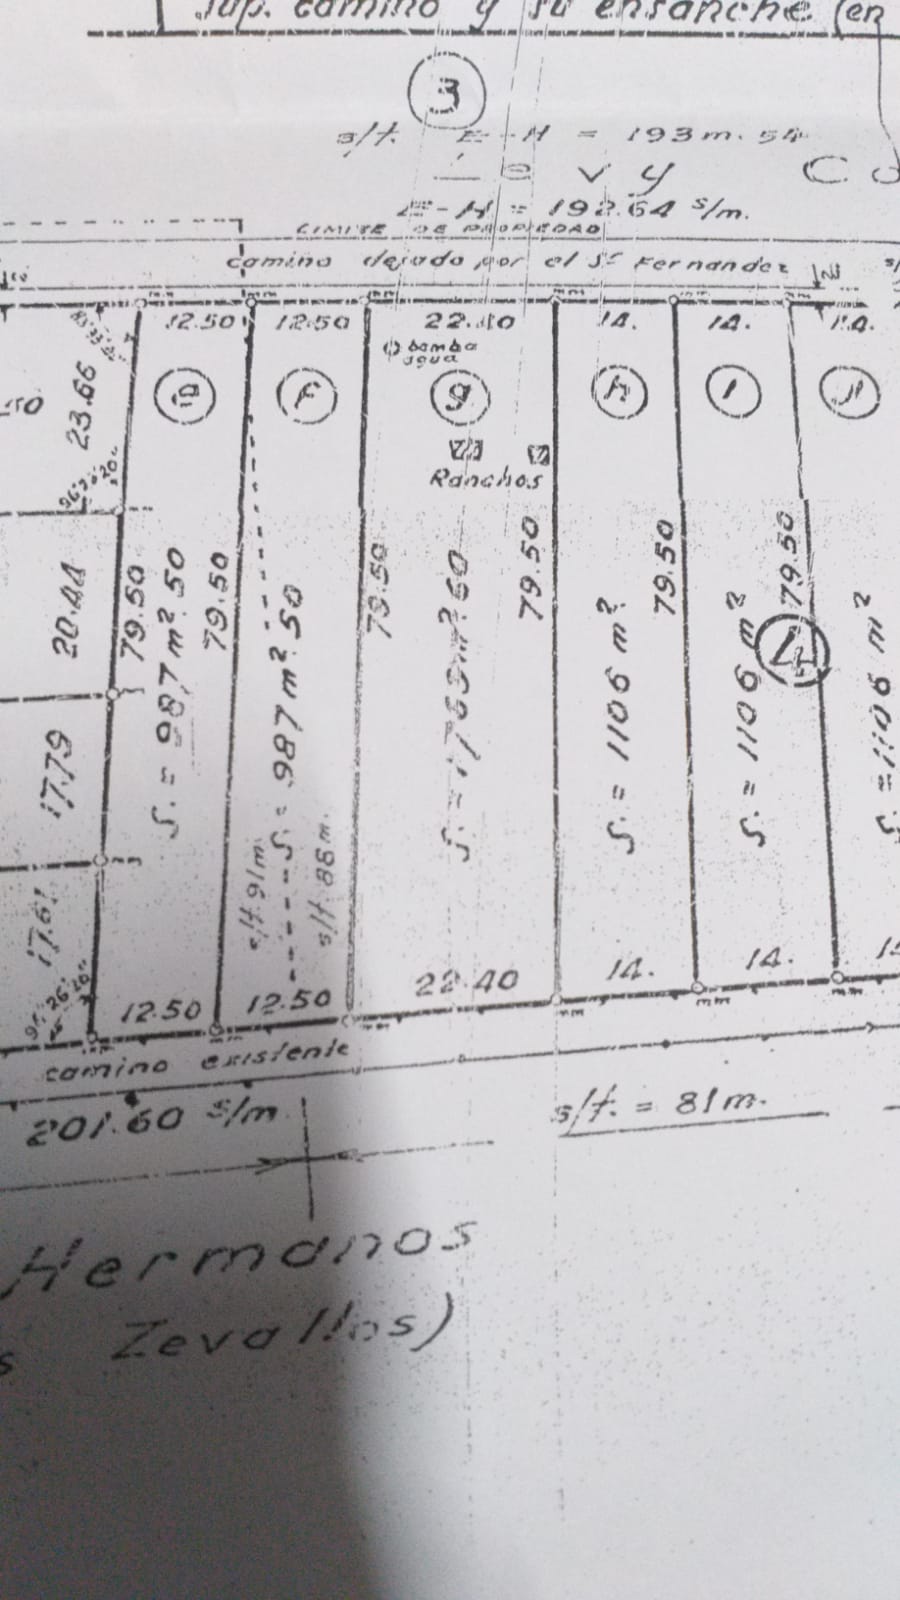 Sup. camino y su ensanche (en
3
s/t. E-H = 193m.54
E-H = 192.64 s/m.
LIMITE DE PROPIEDAD
camino dejado por el Sr Fernandez
12.50 12.50 22.40 14. 14. 14.
bomba
agua
F g h I
Ranchos
23.66
20.44
17.79
17.61
79.50
S. = 987 m².50
79.50
S. = 987 m².50
79.50
79.50
S. = 1106 m²
79.50
S. = 1106 m²
79.50
4
S. = 1106 m²
s/t. 91m.
s/t. 88m.
12.50 12.50 22.40 14. 14.
camino existente
201.60 s/m
s/t. = 81m.
Hermanos
Zevallos)